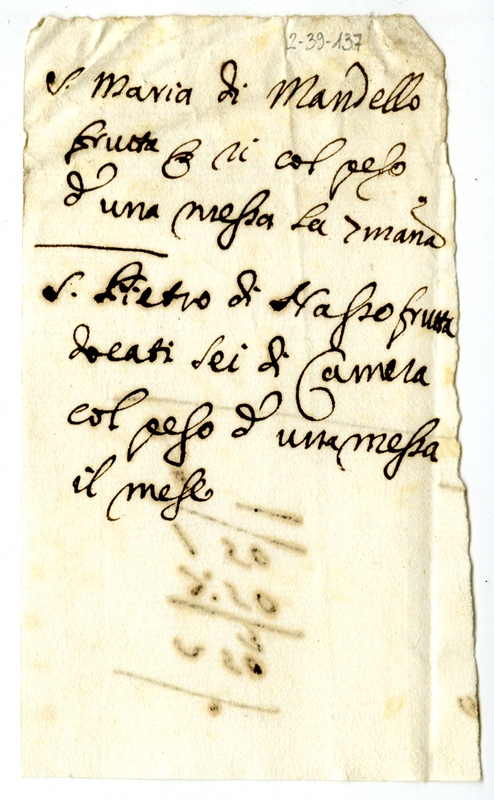 2-39-137
S. Maria di Mandello
frutta col peso
d' una messa la 7mana
S. Pietro di Nasso frutta
docati sei di Camera
col peso d' una messa
il mese